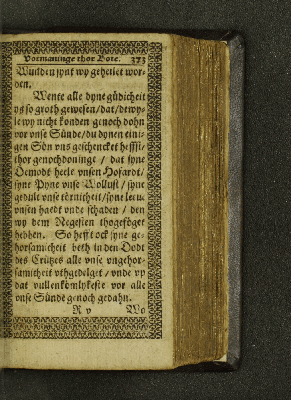 Vormaninge thor Bote. 373
Wunden synt wy geheilet wor-
den.
Wente alle dyne güdicheit
ys so groth gewesen / dat / dewy-
le wy nicht konden genoch dohn
vor vnse Sünde / du dynen eini-
gen Sön vns geschencket heffst /
thor genochdoninge / dat syne
Demodt heele vnsen Hofardt /
syne Pyne vnse Wollust / syne
gedult vnse törnicheit / syne leeue
vnsen haedt vnde schaden / den
wy dem Negesten thogeföget
hebben. So hefft ock syne ge-
horsamicheit beth in den Dodt
des Crützes alle vnse vngehor-
samicheit vthgedelget / vnde vp
dat vullenkömlykeste vor alle
vnse Sünde genoch gedahn.
R v Wo